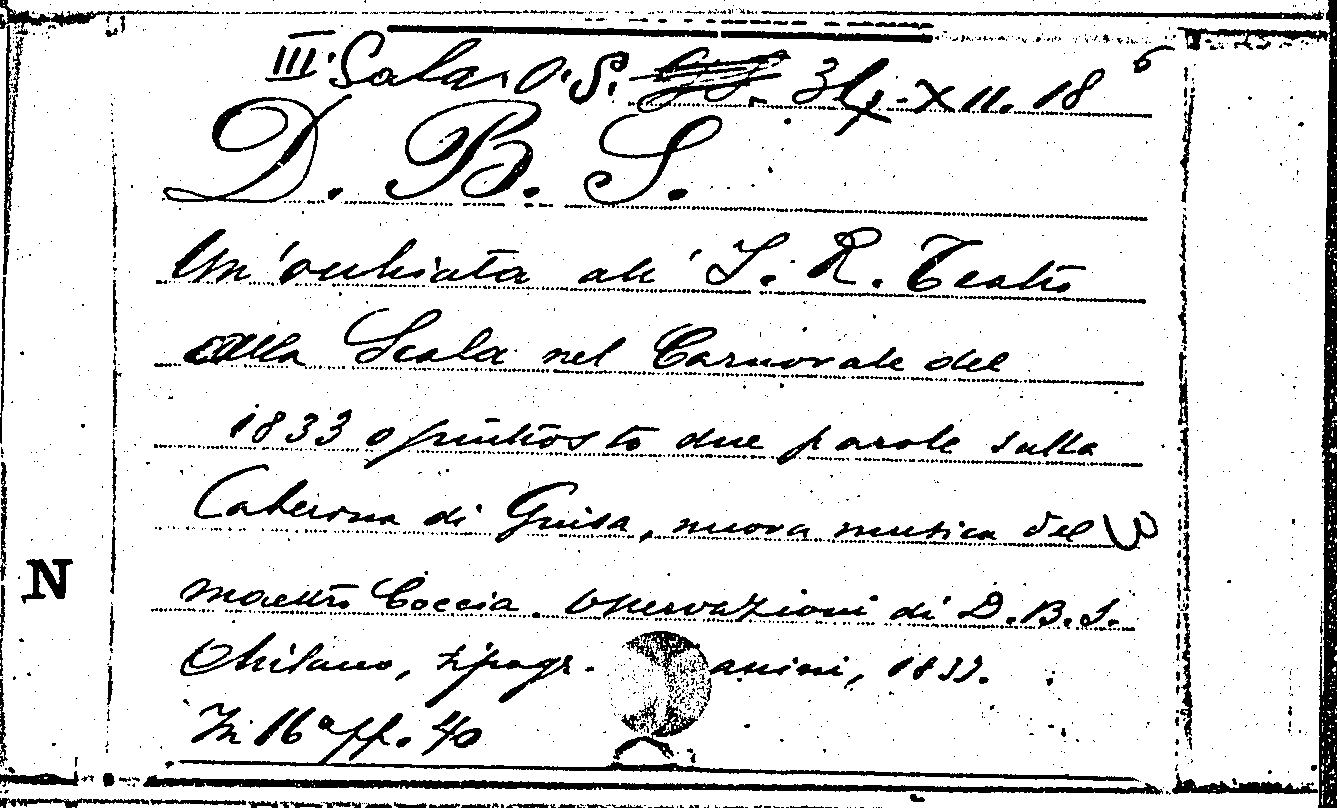 III. Sala. O. S. 34-XII. 18 6
D. B. S.
Un'occhiata all' I. R. Teatro
alla Scala nel Carnovale del
1833 o piuttosto due parole sulla
Caterina di Guisa, nuova musica del
N
maestro Coccia. Osservazioni di D.B.S.
Milano, tipogr. anini, 1833.
In 16° pp. 40